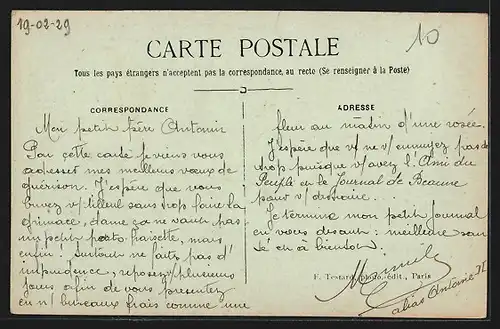 19-02-29
10
CARTE POSTALE
Tous les pays étrangers n'acceptent pas la correspondance, au recto (Se renseigner à la Poste)
CORRESPONDANCE
Mon petit frère Antonin
Par cette carte je viens vous
adresser mes meilleurs vœux de
guérison. J'espère que vous
buvez v/ tilleul sans trop faire la
grimace, dame ça ne vaut pas
un petit porto fraisette, mais
enfin : surtout ne faites pas d'
imprudence ; reposez plusieurs
jours afin de vous présenter
en n/ bureaux frais comme une
ADRESSE
fleur au matin d'une rosée.
J'espère que v/ ne v/ ennuyez pas de
trop puisque v/ avez l'Ami du
Peuple et le Journal de Beaune
pour v/ distraire...
Je termine mon petit journal
en vous disant : meilleure san
té et à bientôt.
F. Testard, photo. édit., Paris
alias Antoine II